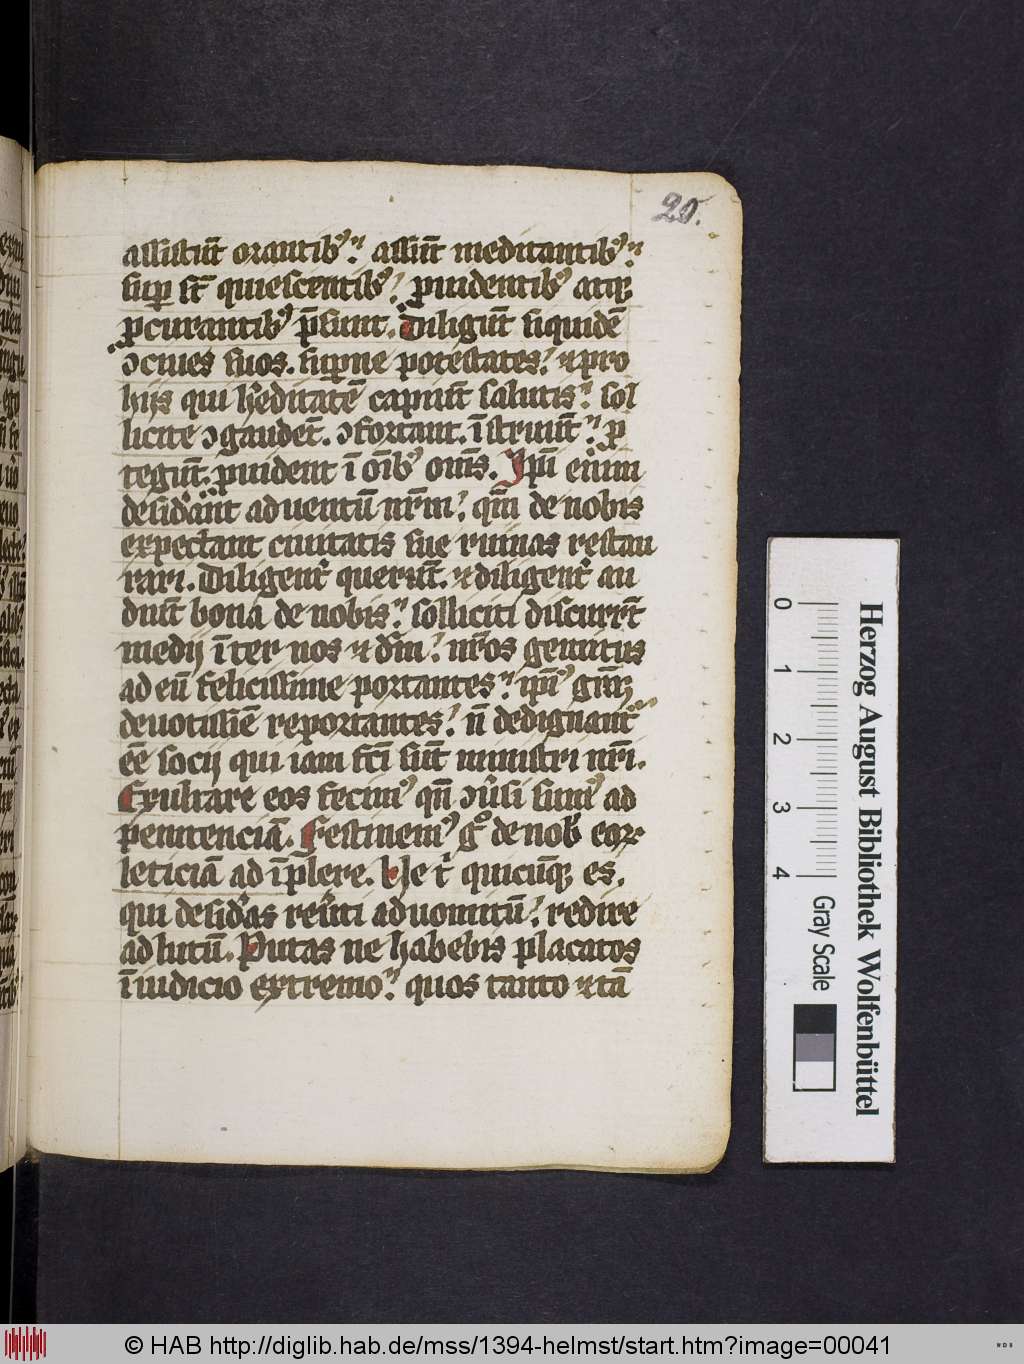 20.
assistūt orantibꝰ. assūt meditantibꝰ.
sup̱ sr̄t quiescentibꝰ. ꝓuidentibꝰ atqꝫ
ꝓcurantibꝰ p̄sunt. Diligūt siquidē
ꝯciues suos. suꝑne potestates. ⁊ pro
hijs qui h'editatē capiūt salutis. sol
licite ꝯgaudēt. ꝯfortant. īstruūt. ꝓ
tegūt. ꝓuident ī oīb' oīns. Ip̄m enim
desid'ant aduentū nr̄m. qm̄ de nobis
expectant ciuitatis sue ruinas restau
rari. Diligent' querūt. ⁊ diligent' au
diūt bona de nobis. solliciti discurrūt
medij īter nos ⁊ dm̄. nr̄os gemitus
ad eū felicissime portantes. ip̄iꝰ gr̄aꝫ
deuotissīe reportantes. n̄ dedignant'
eē socij qui iam fc̄i sūt ministri nr̄i.
Exultare eos fecimꝰ qn̄ ꝯuersi sumꝰ ad
penitenciā. Festinemꝰ g° de nob' eoꝝ
leticiā ad īplere. Ve t' quicūqꝫ es.
qui desid'as reu'ti ad uomitū. redire
ad lutū. Putas ne habebis placatos
ī iudicio extremo. quos tanto ⁊ tā
Herzog August Bibliothek Wolfenbüttel
0 1 2 3 4 Gray Scale
© HAB http://diglib.hab.de/mss/1394-helmst/start.htm?image=00041